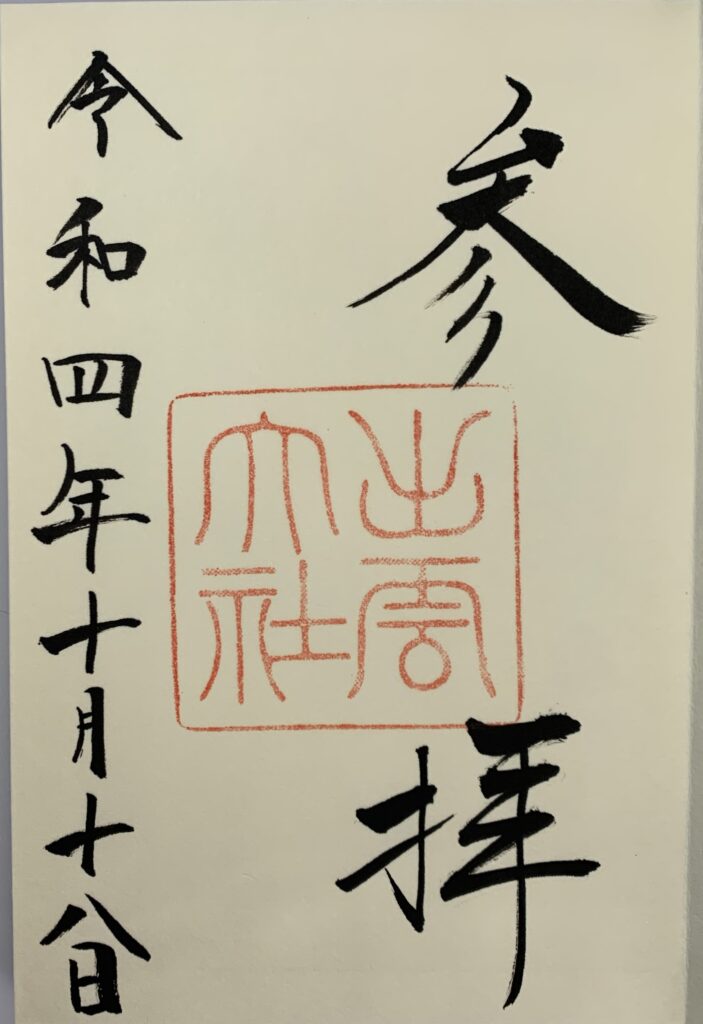 参拝
出雲
大社
令和四年十月十八日